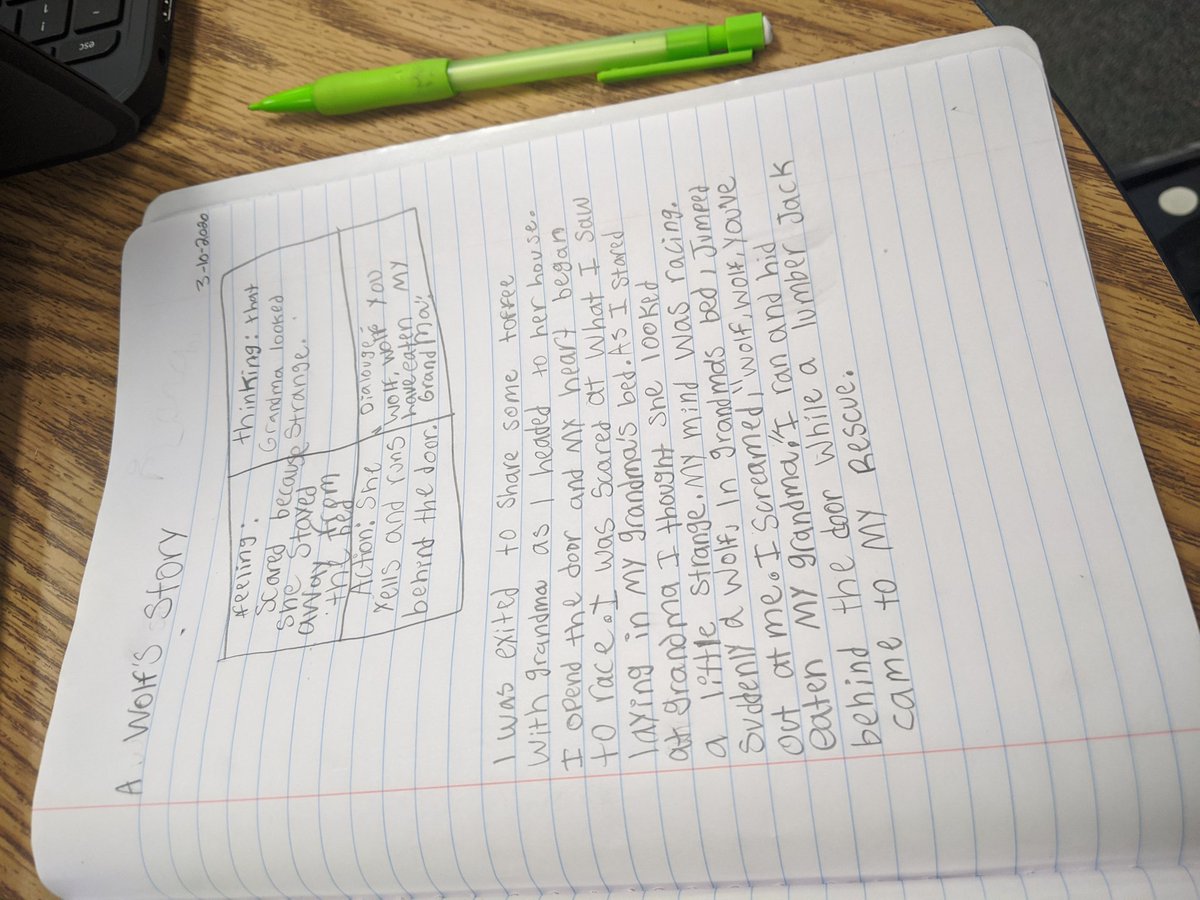 A Wolf's Story
3-10-2020
Feeling:
Scared because
She Stayed
away from
the bed
thinking: that
Grandma looked
Strange.
Action: She
yells and runs
behind the door.
Dialouge: You
wolf, wolf
have eaten my
Grandma".
I was exited to share some toffee
With grandma as I headed to her house.
I opend the door and my heart began
to race. I was Scared at what I saw
laying in my grandma's bed. As I stared
at grandma I thought she looked
a little strange. My mind was racing.
Suddenly a wolf, in grandmas bed, Jumped
out at me. I Screamed, "wolf, wolf, you've
eaten my grandma," I ran and hid
behind the door while a lumber Jack
came to my Rescue.
esc